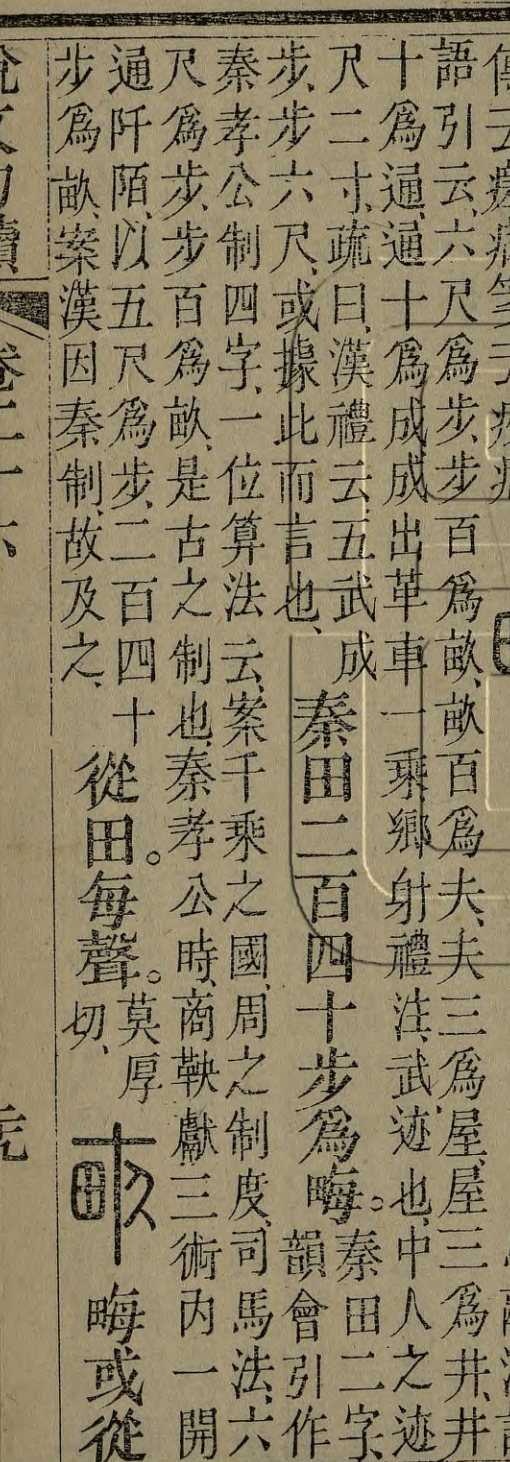 語引云、六尺爲步、步百爲畝、畝百爲夫、夫三爲屋、屋三爲井、井
十爲通、通十爲成、成出革車一乘、鄉射禮注、武迹也、中人之迹
尺二寸、疏曰、漢禮云、五武成
步、步六尺、或據此而言也、
秦田二百四十步爲畮。
秦田二字、
韻會引作
秦孝公制四字、一位算法云、案千乘之國、周之制度、司馬法、六
尺爲步、步百爲畝、是古之制也、秦孝公時、商鞅獻三術、内一開
通阡陌、以五尺爲步、二百四十
步爲畝、案漢因秦制、故及之、
從田。每聲。
莫厚
切、
畮或從